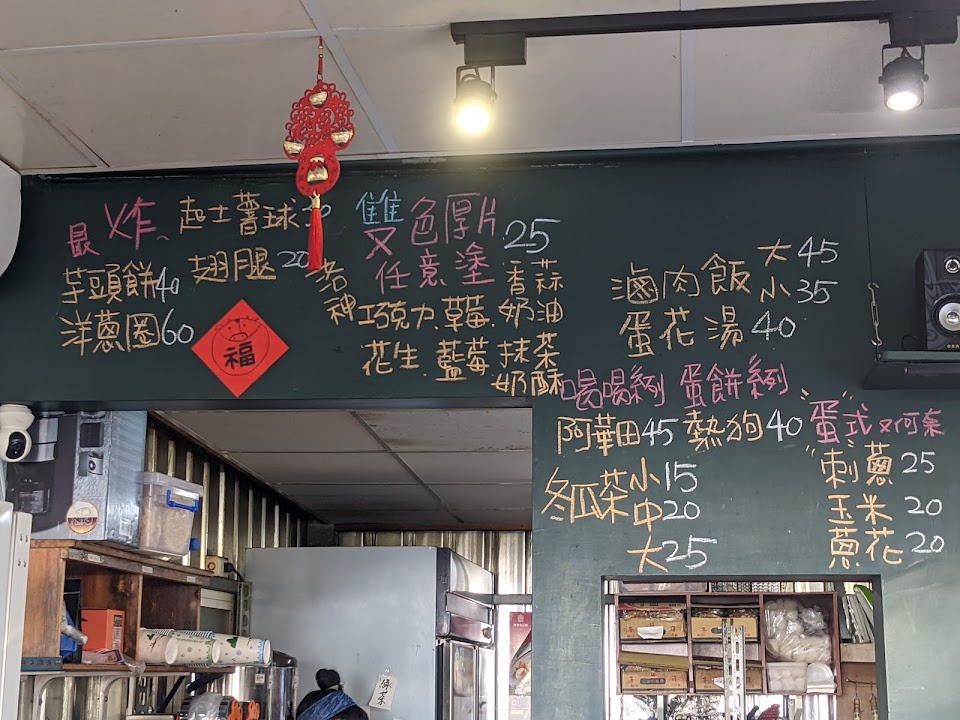 最ㄨ炸、
起士薯球30
芋頭餅40
翅腿20
洋蔥圈60
福
雙色厚片25
任意塗
香蒜
巧克力、草莓、奶油
花生、藍莓、抹茶
奶酥
滷肉飯大45
小35
蛋花湯40
喝喝系列
阿華田45
冬瓜茶小15
中20
大25
蛋餅系列
熱狗40
蛋式ㄡ何奈
刺蔥25
玉米20
蔥花20